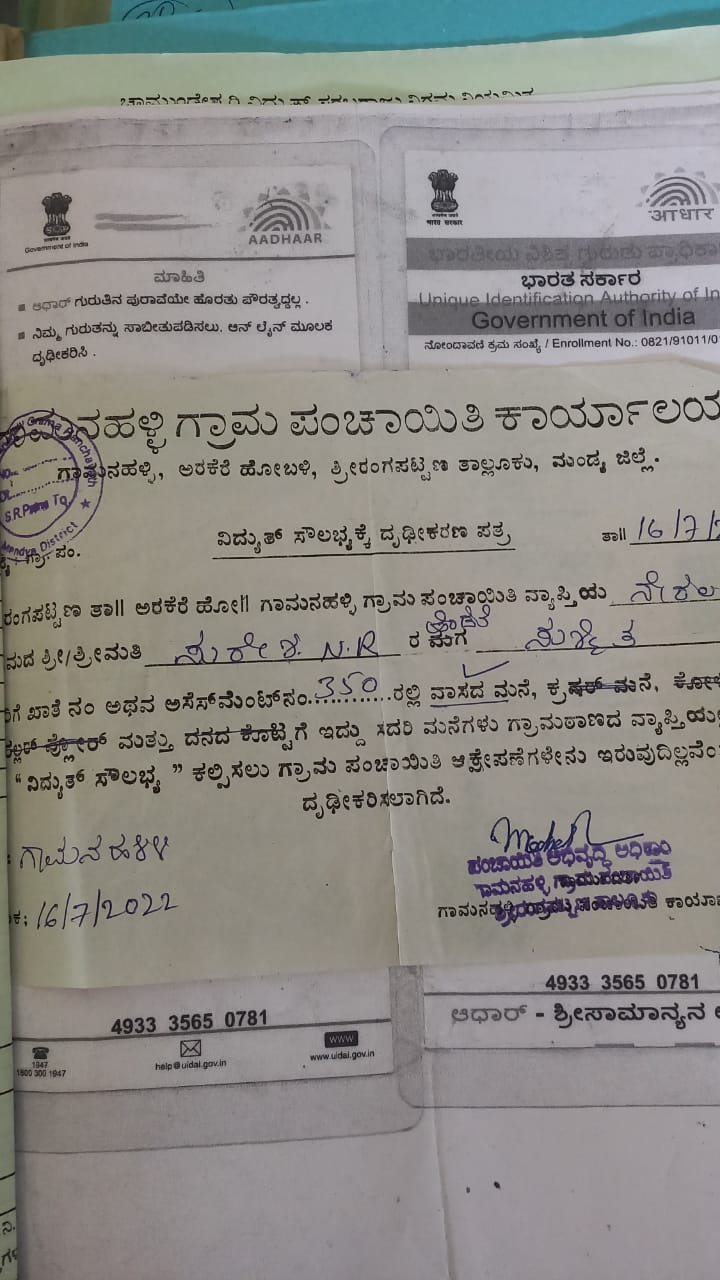 Government of India
AADHAAR
ಮಾಹಿತಿ
■ ಆಧಾರ್ ಗುರುತಿನ ಪುರಾವೆಯೇ ಹೊರತು ಪೌರತ್ವದ್ದಲ್ಲ.
■ ನಿಮ್ಮ ಗುರುತನ್ನು ಸಾಬೀತುಪಡಿಸಲು. ಆನ್ ಲೈನ್ ಮೂಲಕ
ದೃಢೀಕರಿಸಿ.
भारत सरकार
आधार
ಭಾರತ ಸರ್ಕಾರ
Unique Identification Authority of In
Government of India
ನೋಂದಾವಣೆ ಕ್ರಮ ಸಂಖ್ಯೆ / Enrollment No.: 0821/91011/0
ಮನಹಳ್ಳಿ ಗ್ರಾಮ ಪಂಚಾಯಿತಿ ಕಾರ್ಯಾಲಯ
ಗಾಮನಹಳ್ಳಿ, ಅರಕೆರೆ ಹೋಬಳಿ, ಶ್ರೀರಂಗಪಟ್ಟಣ ತಾಲ್ಲೂಕು, ಮಂಡ್ಯ ಜಿಲ್ಲೆ.
S.R.Patna Tq.
Mandya District
ಗ್ರಾ. ಪಂ.
ವಿದ್ಯುತ್ ಸೌಲಭ್ಯಕ್ಕೆ ದೃಢೀಕರಣ ಪತ್ರ
ತಾ|| 16/7/2
ರಂಗಪಟ್ಟಣ ತಾ|| ಅರಕೆರೆ ಹೋ|| ಗಾಮನಹಳ್ಳಿ ಗ್ರಾಮ ಪಂಚಾಯಿತಿ ವ್ಯಾಪ್ತಿಯ
ಮದ ಶ್ರೀ/ಶ್ರೀಮತಿ ಸುರೇಶ. N.R ರ ಮಗ
ಗೆ ಖಾತೆ ನಂ ಅಥವ ಅಸೆಸ್‌ಮೆಂಟ್‌ನಂ. 350 ರಲ್ಲಿ ವಾಸದ ಮನೆ,
ಮತ್ತು ದನದ ಕೊಟ್ಟಿಗೆ ಇದ್ದು ಸದರಿ ಮನೆಗಳು ಗ್ರಾಮಠಾಣದ ವ್ಯಾಪ್ತಿಯ
“ವಿದ್ಯುತ್ ಸೌಲಭ್ಯ ” ಕಲ್ಪಿಸಲು ಗ್ರಾಮ ಪಂಚಾಯಿತಿ ಆಕ್ಷೇಪಣೆಗಳೇನು ಇರುವುದಿಲ್ಲವೆಂ
ದೃಢೀಕರಿಸಲಾಗಿದೆ.
: ಗಾಮನಹಳಿ
ಕ: 16/7/2022
ಪಂಚಾಯಿತಿ ಅಭಿವೃದ್ಧಿ ಅಧಿಕಾರಿ
4933 3565 0781
1947
1800 300 1947
help@uidai.gov.in
www
www.uidai.gov.in
4933 3565 0781
ಆಧಾರ್ - ಶ್ರೀಸಾಮಾನ್ಯನ